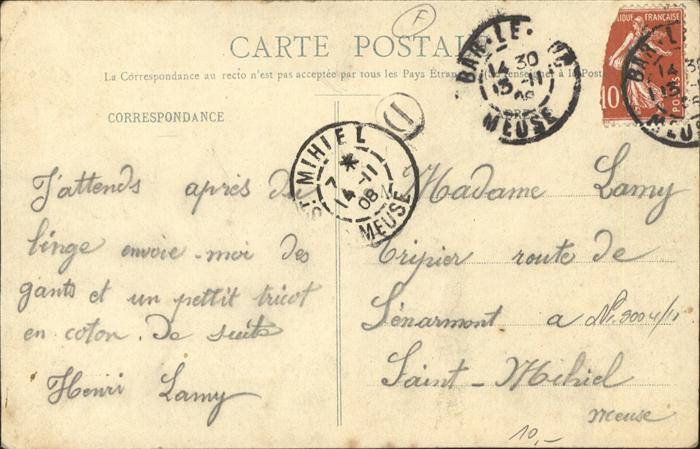 F
CARTE POSTAL
La Correspondance au recto n'est pas acceptée par tous les Pays Étran
CORRESPONDANCE
BAR-LE-
14 30
13 -11
08
MEUSE
LIQUE FRANÇAISE
10
POSTES
BAR-L
14 30
MEUSE
1
ST MIHIEL
7
14 -11
08
MEUSE
J'attends après de
linge envoie-moi des
gants et un pettit tricot
en coton. De suite
Henri Lamy
Madame Lamy
tripier route de
Sénarmont a
Saint-Mihiel
Meuse
10,-